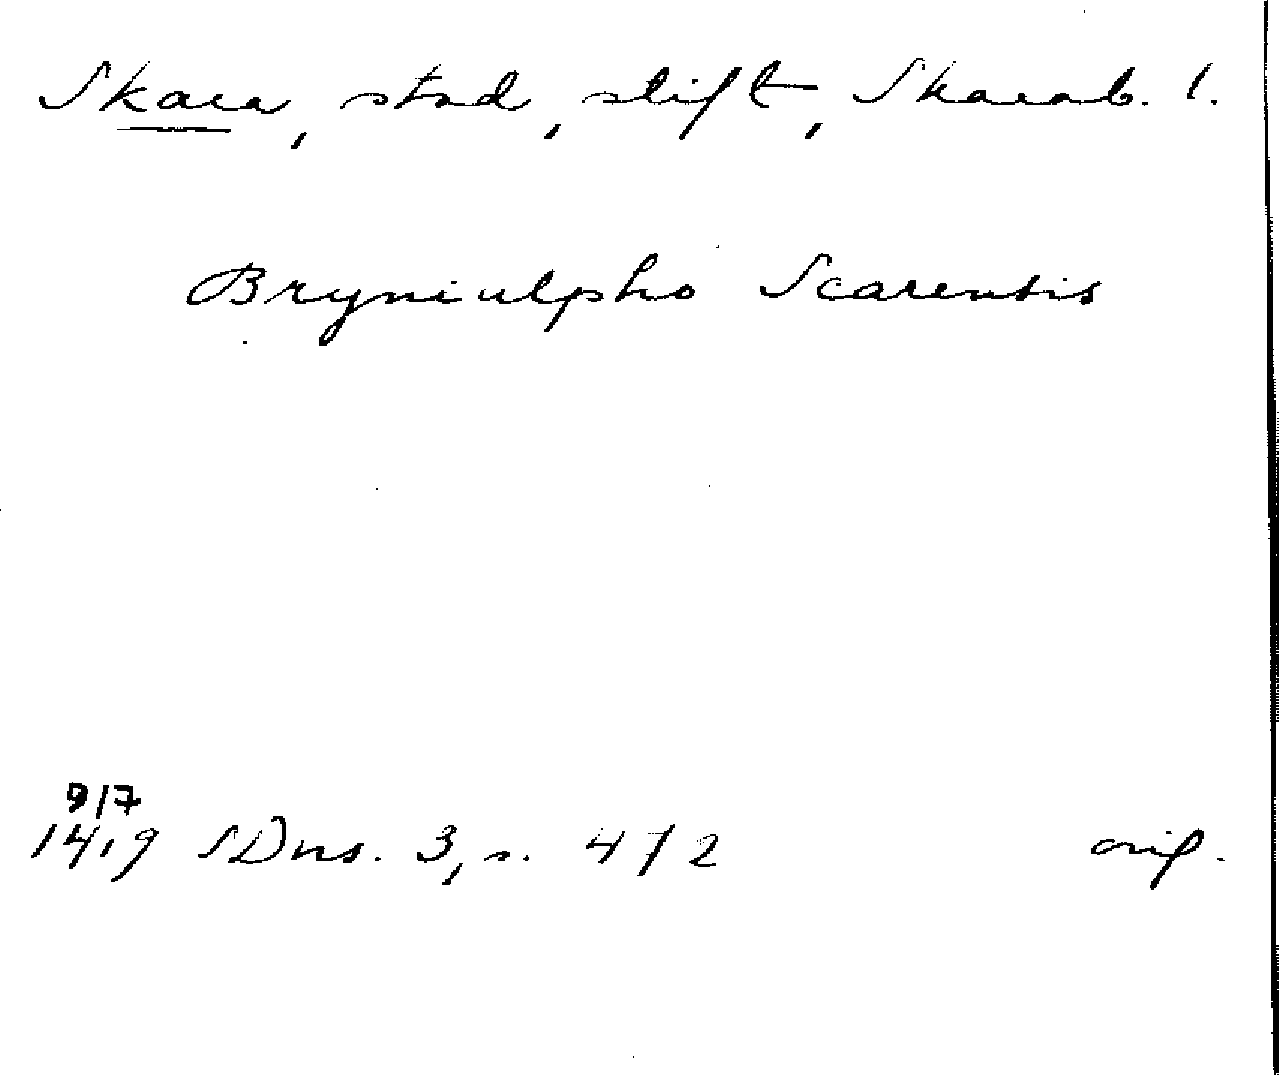 Skara, stad, stift, Skarab. l.
Bryniulpho Scarensis
9/7
1419 SDns. 3, s. 472
orig.